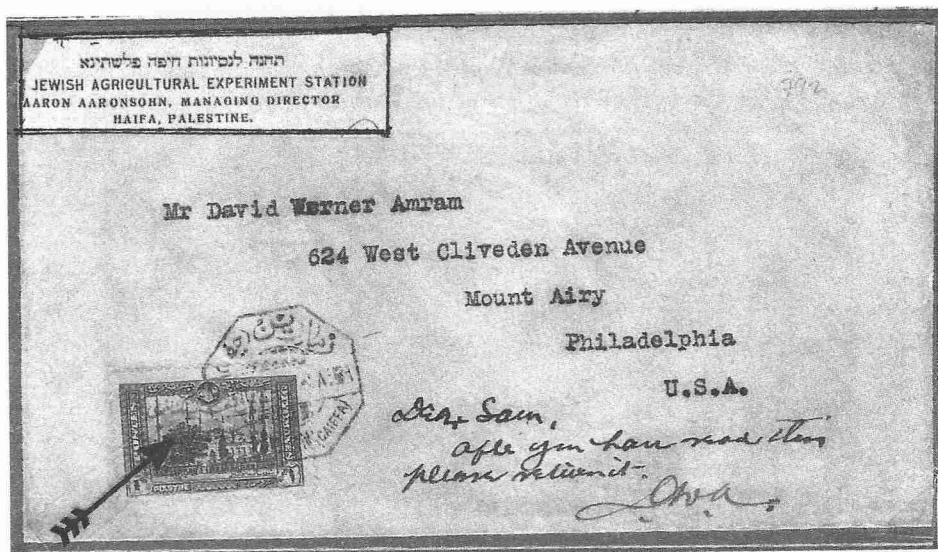 תחנה לנסיונות חיפה פלשתינא
JEWISH AGRICULTURAL EXPERIMENT STATION
AARON AARONSOHN, MANAGING DIRECTOR
HAIFA, PALESTINE.
792
Mr David Werner Amram
624 West Cliveden Avenue
Mount Airy
Philadelphia
U.S.A.
CAIFFA
1 1
PIASTRE
Dear Sam,
after you have read this
please return it.
D.W.A.